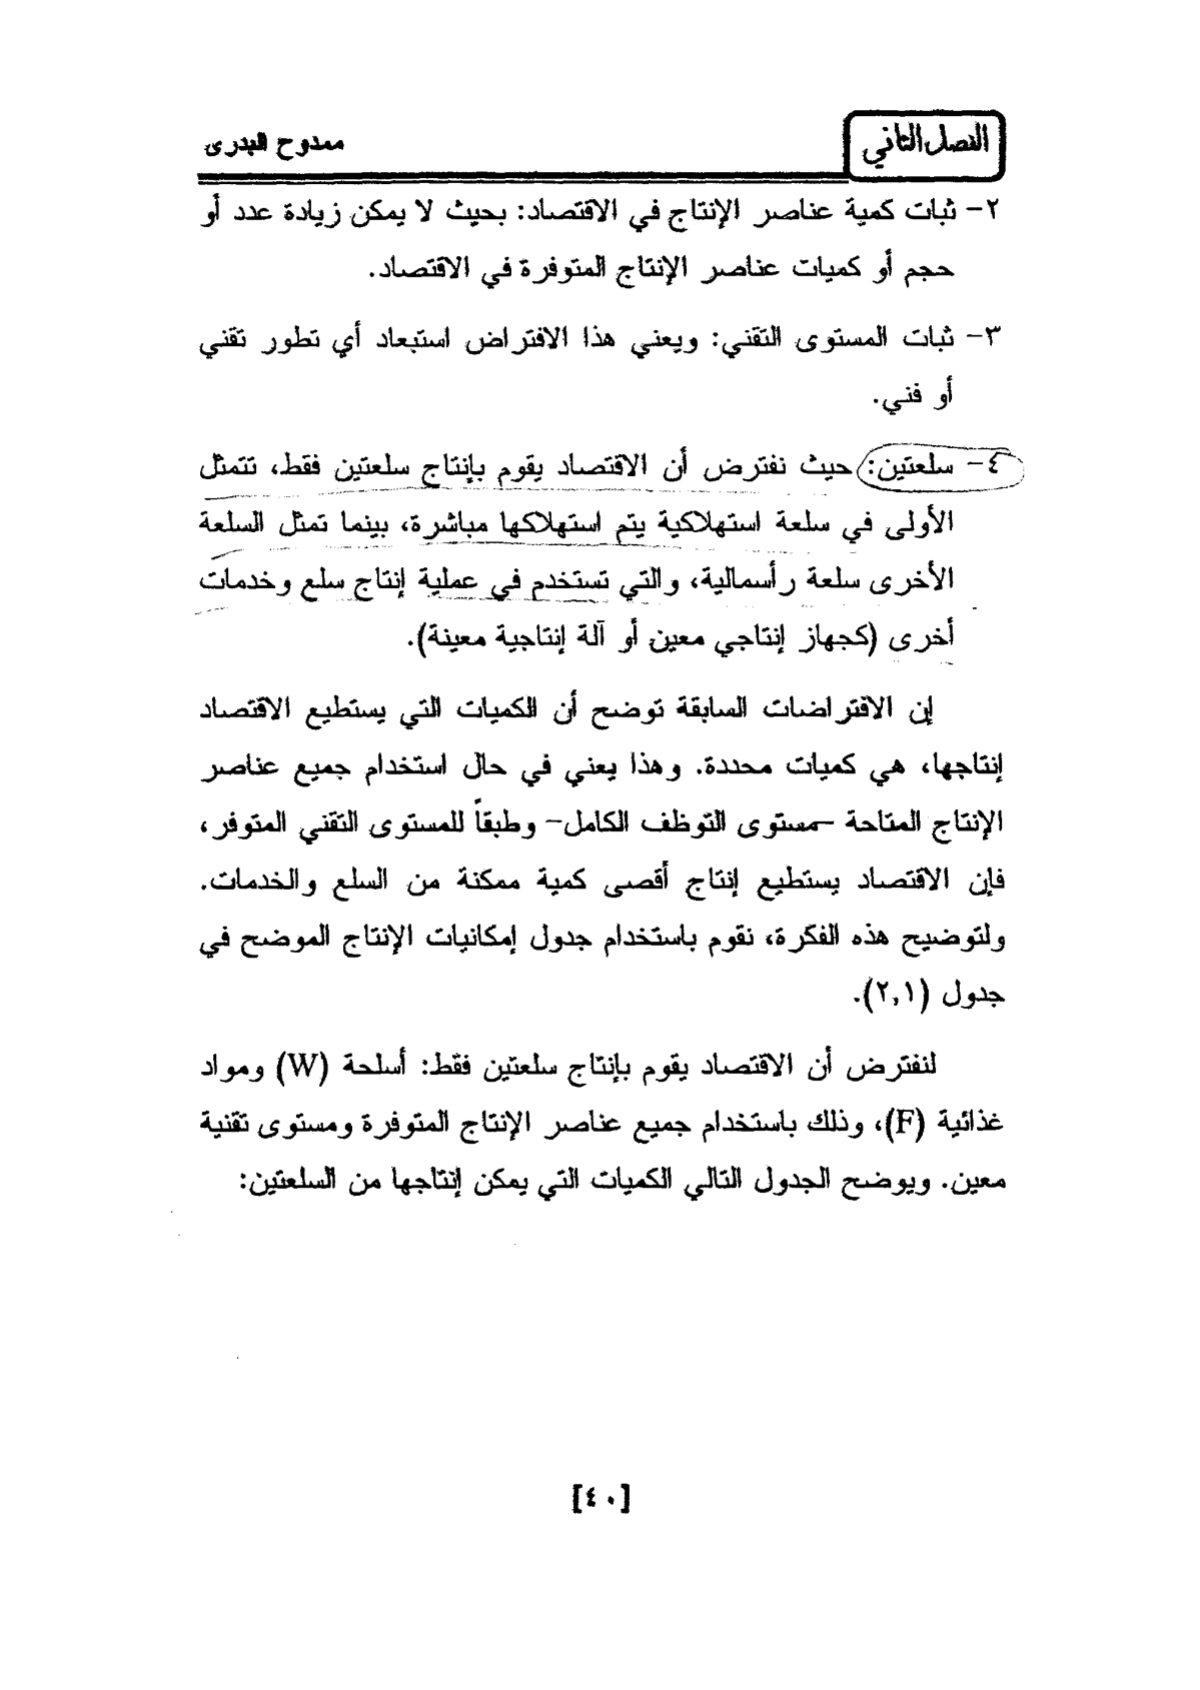 الفصل الثاني
ممدوح البدرى
٢- ثبات كمية عناصر الإنتاج في الاقتصاد: بحيث لا يمكن زيادة عدد أو
حجم أو كميات عناصر الإنتاج المتوفرة في الاقتصاد.
٣- ثبات المستوى التقني: ويعني هذا الافتراض استبعاد أي تطور تقني
أو فني.
٤- سلعتين: حيث نفترض أن الاقتصاد يقوم بإنتاج سلعتين فقط، تتمثل
الأولى في سلعة استهلاكية يتم استهلاكها مباشرة، بينما تمثل السلعة
الأخرى سلعة رأسمالية، والتي تستخدم في عملية إنتاج سلع وخدمات
أخرى (كجهاز إنتاجي معين أو آلة إنتاجية معينة).
إن الافتراضات السابقة توضح أن الكميات التي يستطيع الاقتصاد
إنتاجها، هي كميات محددة. وهذا يعني في حال استخدام جميع عناصر
الإنتاج المتاحة –مستوى التوظف الكامل– وطبقاً للمستوى التقني المتوفر،
فإن الاقتصاد يستطيع إنتاج أقصى كمية ممكنة من السلع والخدمات.
ولتوضيح هذه الفكرة، نقوم باستخدام جدول إمكانيات الإنتاج الموضح في
جدول (٢,١).
لنفترض أن الاقتصاد يقوم بإنتاج سلعتين فقط: أسلحة (W) ومواد
غذائية (F)، وذلك باستخدام جميع عناصر الإنتاج المتوفرة ومستوى تقنية
معين. ويوضح الجدول التالي الكميات التي يمكن إنتاجها من السلعتين:
[٤٠]